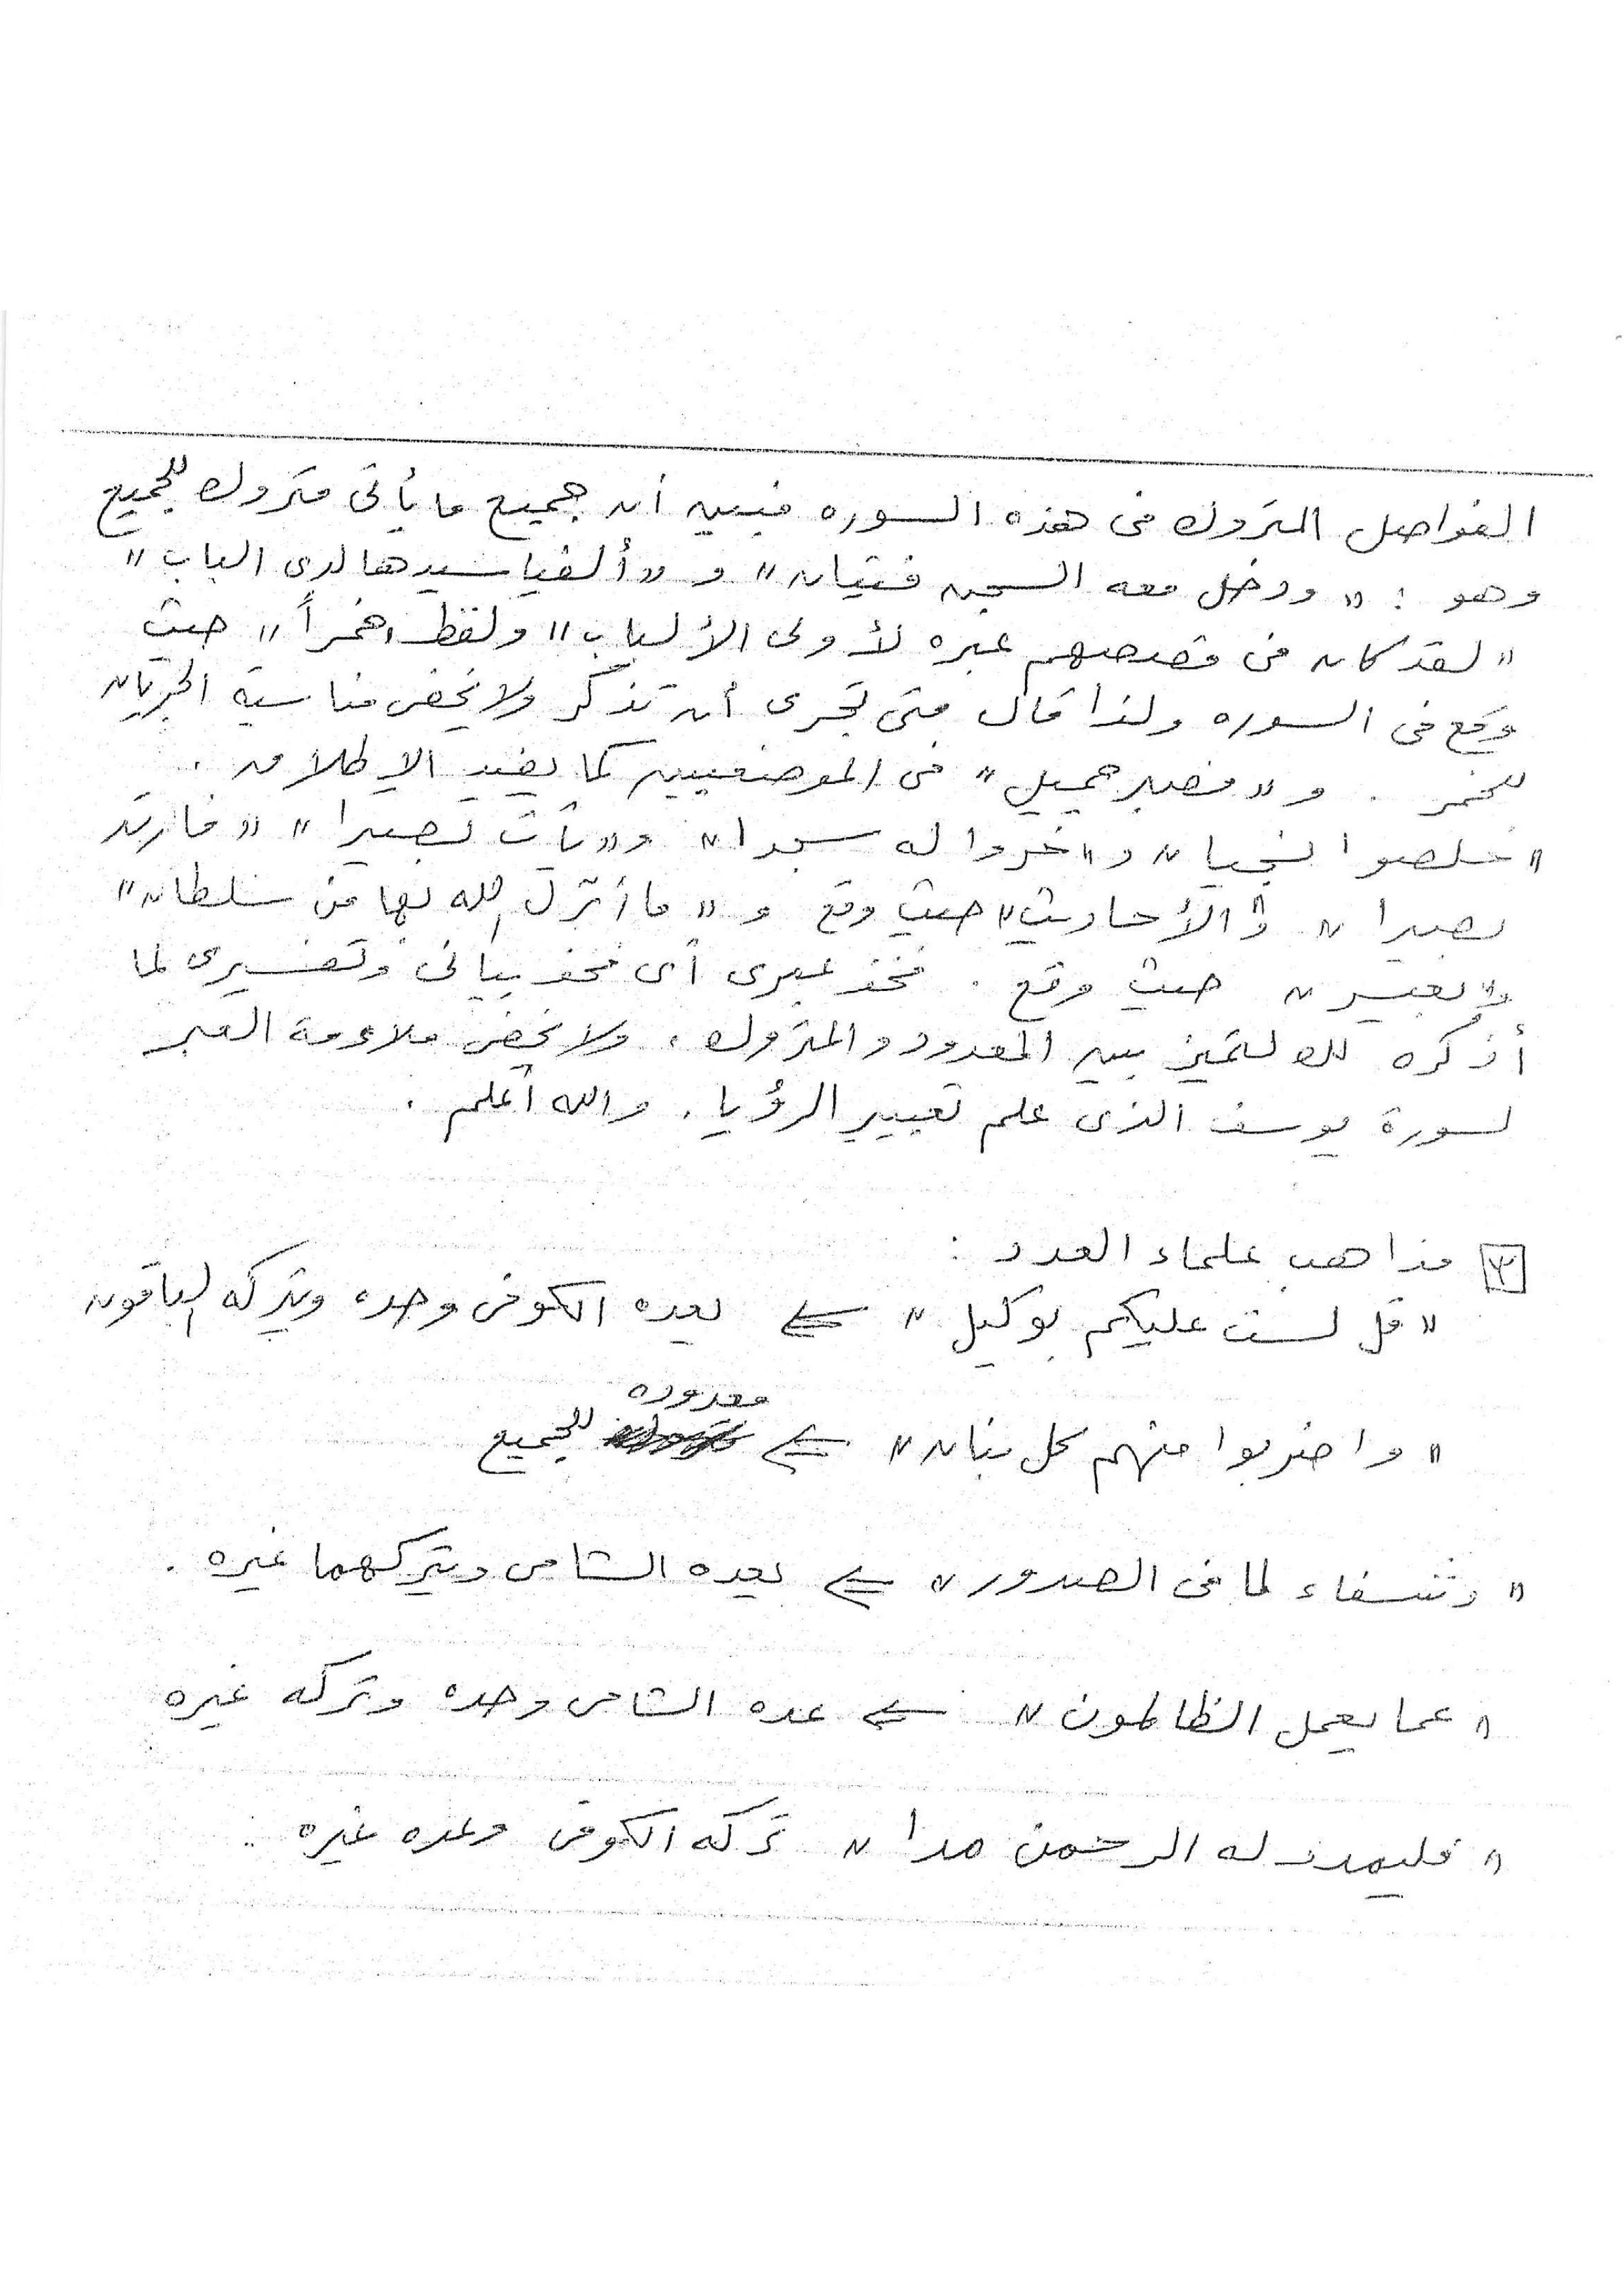 الفواصل المتروك فى هذه السوره فبين أن جميع ما يأتى متروك للجميع
وهو : « ودخل معه السجن فتيان » و « ألفيا سيدها لدى الباب »
« لقد كان فى قصصهم عبره لأولى الألباب » ولفظ « خمراً » حيث
وقع فى السوره ولذا قال متى تجرى أن تذكر ولا يخفى مناسبة الجريان
للخمر . و « فصبر جميل » فى الموضعيين كما يفيد الإطلاق .
« خلصوا نجيا » و « خروا له سجدا » و « يأت بصيرا » « فارتد
بصيرا » و « الأحاديث » حيث وقع و « ما أنزل الله بها من سلطان »
و « بعير » حيث وقع . فخذ عبرى أى فخذ بيانى وتفسيرى لما
أذكره لك لتميز بين المعدود والمتروك ، ولا يخفى ملاءمة العبر
لسورة يوسف الذى علم تعبير الرؤيا . والله أعلم .
٣ مذاهب علماء العدد :
« قل لست عليكم بوكيل » ⇐ يعده الكوفى وحده ويتركه الباقون
« واضربوا منهم كل بنان » ⇐ معدوده للجميع
« وشفاء لما فى الصدور » ⇐ يعده الشامى ويتركهما غيره .
« عما يعمل الظالمون » ⇐ عده الشامى وحده وتركه غيره
« فليمدد له الرحمن مدا » تركه الكوفى وعده غيره .